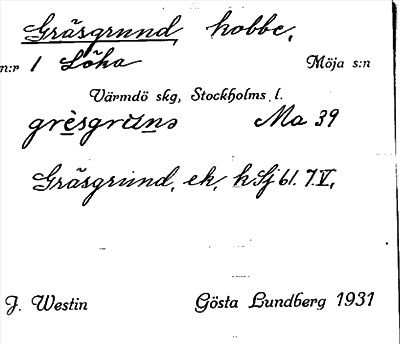 Gräsgrund, kobbe,
n:r 1 Löka Möja s:n
Värmdö skg, Stockholms l.
grèsgrŭnə Ma 39
Gräsgrund, ek, hSj 61. 7. V,
J. Westin Gösta Lundberg 1931